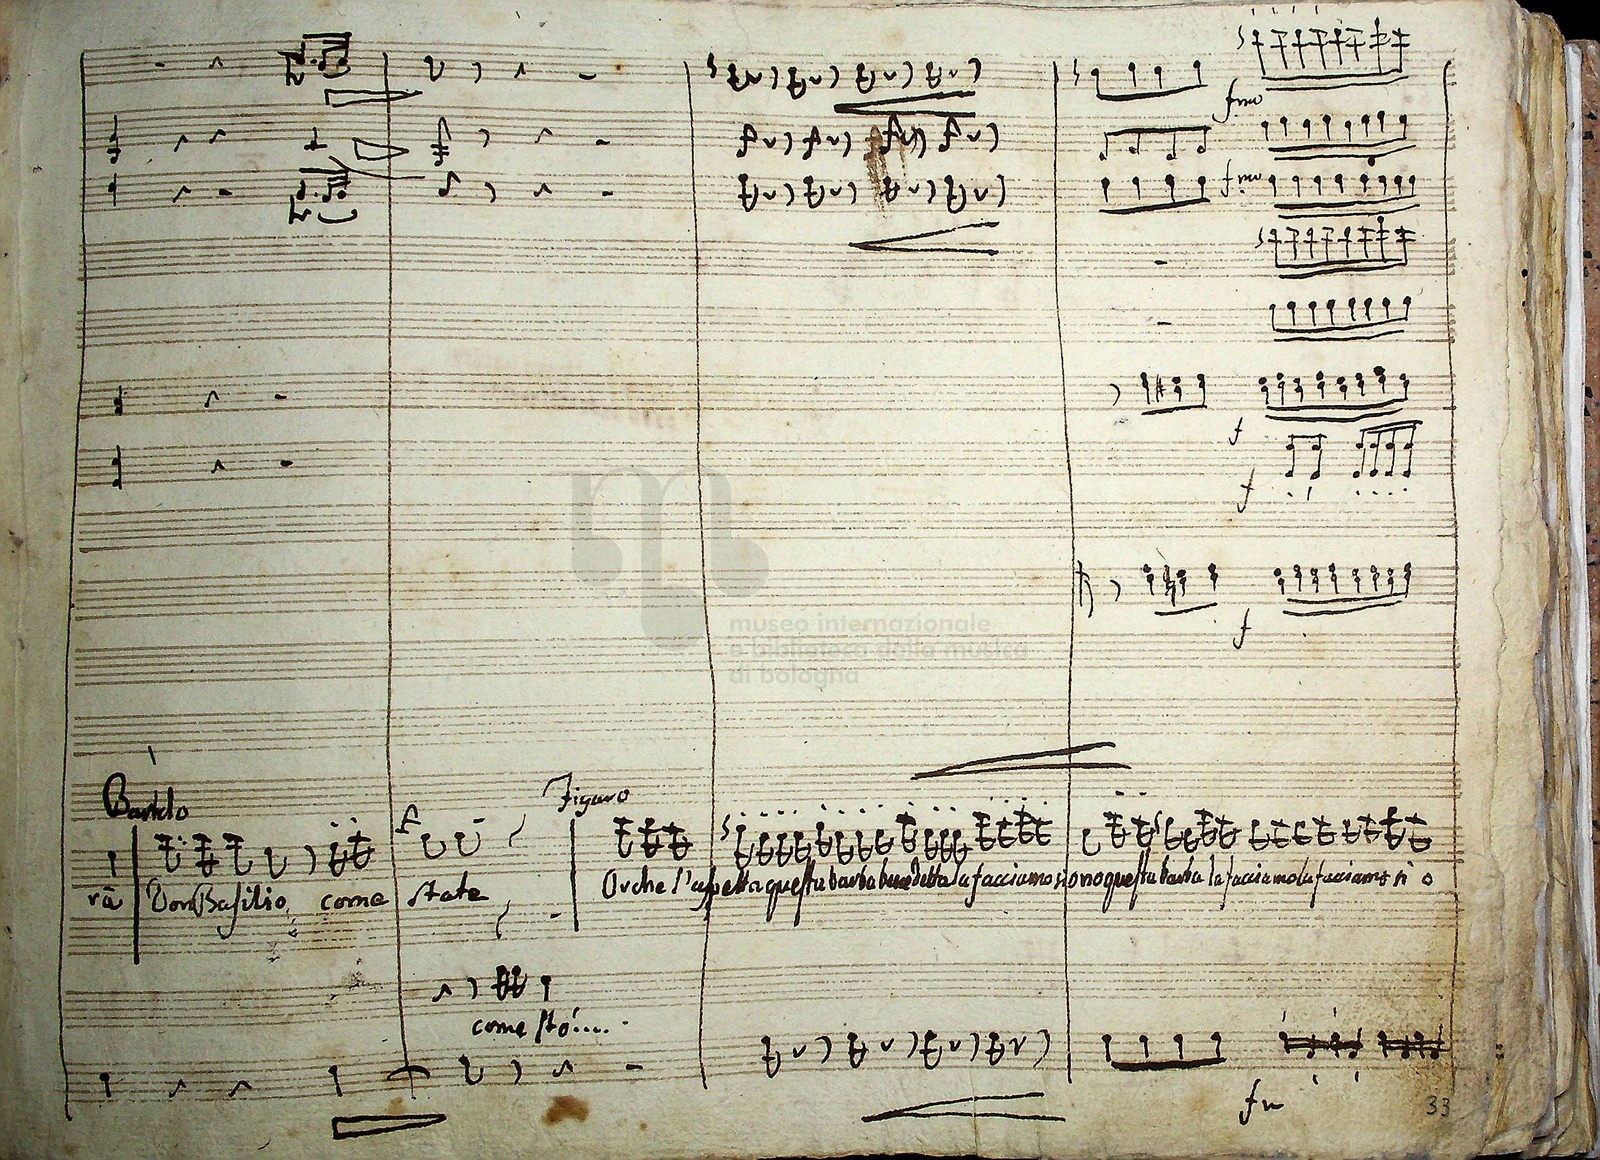 fmo
fmo
f
f
museo internazionale
e biblioteca della musica
di bologna
f
Bartolo
Figaro
rà Don Basilio come state Or che l'aspetta questa barba benedetta la facciamo sì o no questa barba la facciamo la facciamo sì o
come sto.....
33